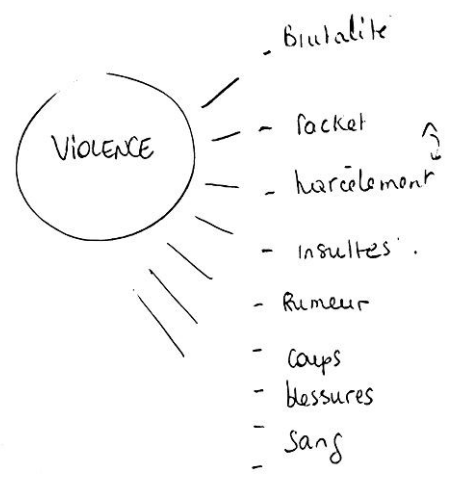 VIOLENCE
- Brutalité
- racket
- harcèlement
- insultes.
- Rumeur
- coups
- blessures
- Sang
-